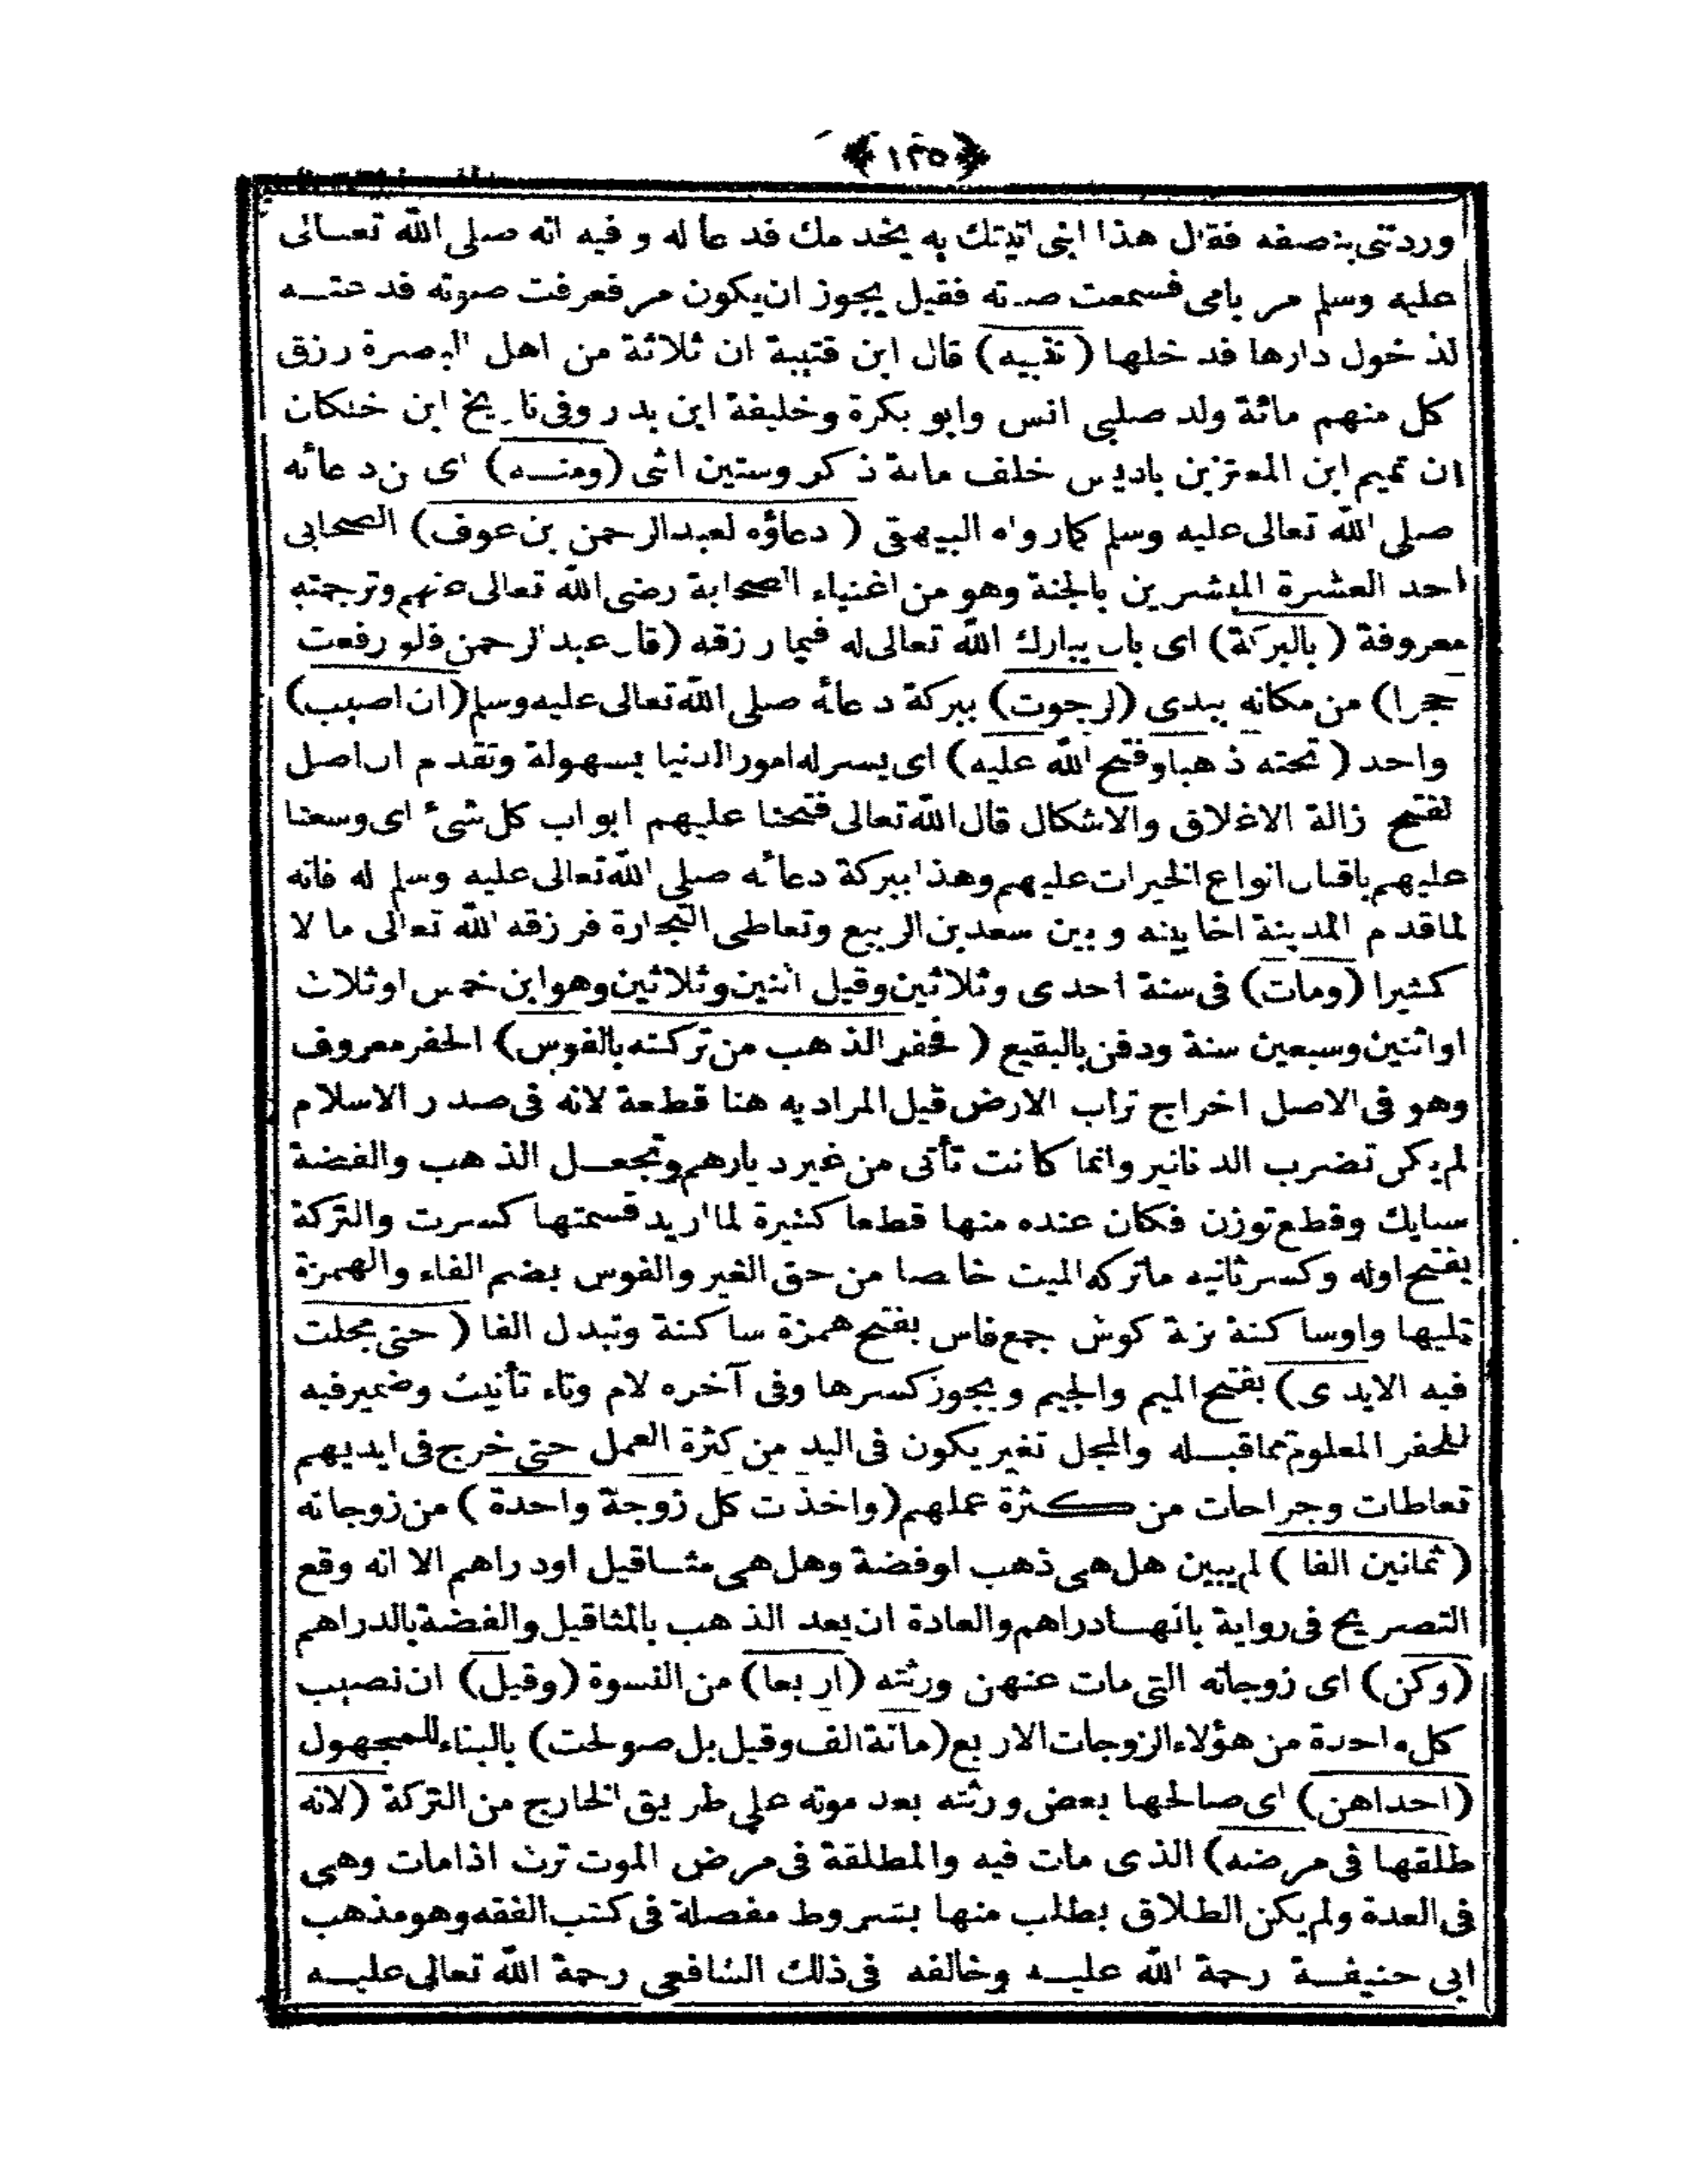 ﴿١٣٥﴾
وردتنى بنصفه فقال هذا ابنى اتيتك به يخدمك فدعا له وفيه انه صلى الله تعالى
عليه وسلم مر بامى فسمعت صوته فقيل يجوز ان يكون مر فعرفت صوته فدعته
لدخول دارها فدخلها (تنبيه) قال ابن قتيبة ان ثلاثة من اهل البصرة رزق
كل منهم مائة ولد صلبى انس وابو بكرة وخليفة ابن بدر وفى تاريخ ابن خلكان
ان تميم ابن المعتز بن باديس خلف مائة ذكر وستين انثى (ومنه) اى من دعائه
صلى الله تعالى عليه وسلم كما رواه البيهقى (دعاؤه لعبد الرحمن بن عوف) الصحابى
احد العشرة المبشرين بالجنة وهو من اغنياء الصحابة رضى الله تعالى عنهم وترجمته
معروفة (بالبركة) اى بان يبارك الله تعالى له فيما رزقه (قال عبد الرحمن فلو رفعت
حجرا) من مكانه بيدى (لرجوت) ببركة دعائه صلى الله تعالى عليه وسلم (ان اصيب)
واحد (تحته ذهبا وفتح الله عليه) اى يسر له امور الدنيا بسهولة وتقدم ان اصل
لفتح زالة الاغلاق والاشكال قال الله تعالى فتحنا عليهم ابواب كل شئ اى وسعنا
عليهم باقبال انواع الخيرات عليهم وهذا ببركة دعائه صلى الله تعالى عليه وسلم له فانه
لما قدم المدينة اخا بينه وبين سعد بن الربيع وتعاطى التجارة فرزقه الله تعالى ما لا
كثيرا (ومات) فى سنة احدى وثلاثين وقيل اثنين وثلاثين وهو ابن خمس او ثلاث
او اثنين وسبعين سنة ودفن بالبقيع (فحفر الذهب من تركته بالفوس) الحفر معروف
وهو فى الاصل اخراج تراب الارض قيل المراد به هنا قطعة لانه فى صدر الاسلام
لم يكن تضرب الدنانير وانما كانت تأتى من غير ديارهم وتجعل الذهب والفضة
سبايك وقطع توزن فكان عنده منها قطعا كثيرة لما اريد قسمتها كسرت والتركة
بفتح اوله وكسر ثانيه ما تركه الميت خاصا من حق الغير والفوس بضم الفاء والهمزة
تليها واو ساكنة بزنة كوش جمع فاس بفتح همزة ساكنة وتبدل الفا (حتى مجلت
فيه الايدى) بفتح الميم والجيم ويجوز كسرها وفى آخره لام وتاء تأنيث وضمير فيه
للحفر المعلوم مما قبله والمجل تغير يكون فى اليد من كثرة العمل حتى خرج فى ايديهم
تعاطات وجراحات من كثرة عملهم (واخذت كل زوجة واحدة) من زوجاته
(ثمانين الفا) لم يبين هل هى ذهب او فضة وهل هى مثاقيل او دراهم الا انه وقع
التصريح فى رواية بانها دراهم والعادة ان يعد الذهب بالمثاقيل والفضة بالدراهم
(وكن) اى زوجاته التى مات عنهن ورثته (اربعا) من النسوة (وقيل) ان نصيب
كل واحدة من هؤلاء الزوجات الاربع (مائة الف وقيل بل صولحت) بالبناء للمجهول
(احداهن) اى صالحها بعض ورثته بعد موته على طريق التخارج من التركة (لانه
طلقها فى مرضه) الذى مات فيه والمطلقة فى مرض الموت ترث اذا مات وهى
فى العدة ولم يكن الطلاق بطلب منها بشروط مفصلة فى كتب الفقه وهو مذهب
ابى حنيفة رحمة الله عليه وخالفه فى ذلك الشافعى رحمة الله تعالى عليه